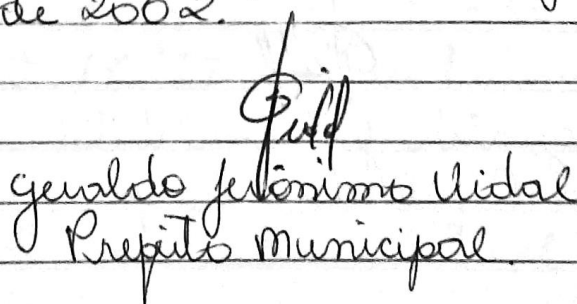 de 2002.
Geraldo Jerônimo Vidal
Prefeito Municipal.